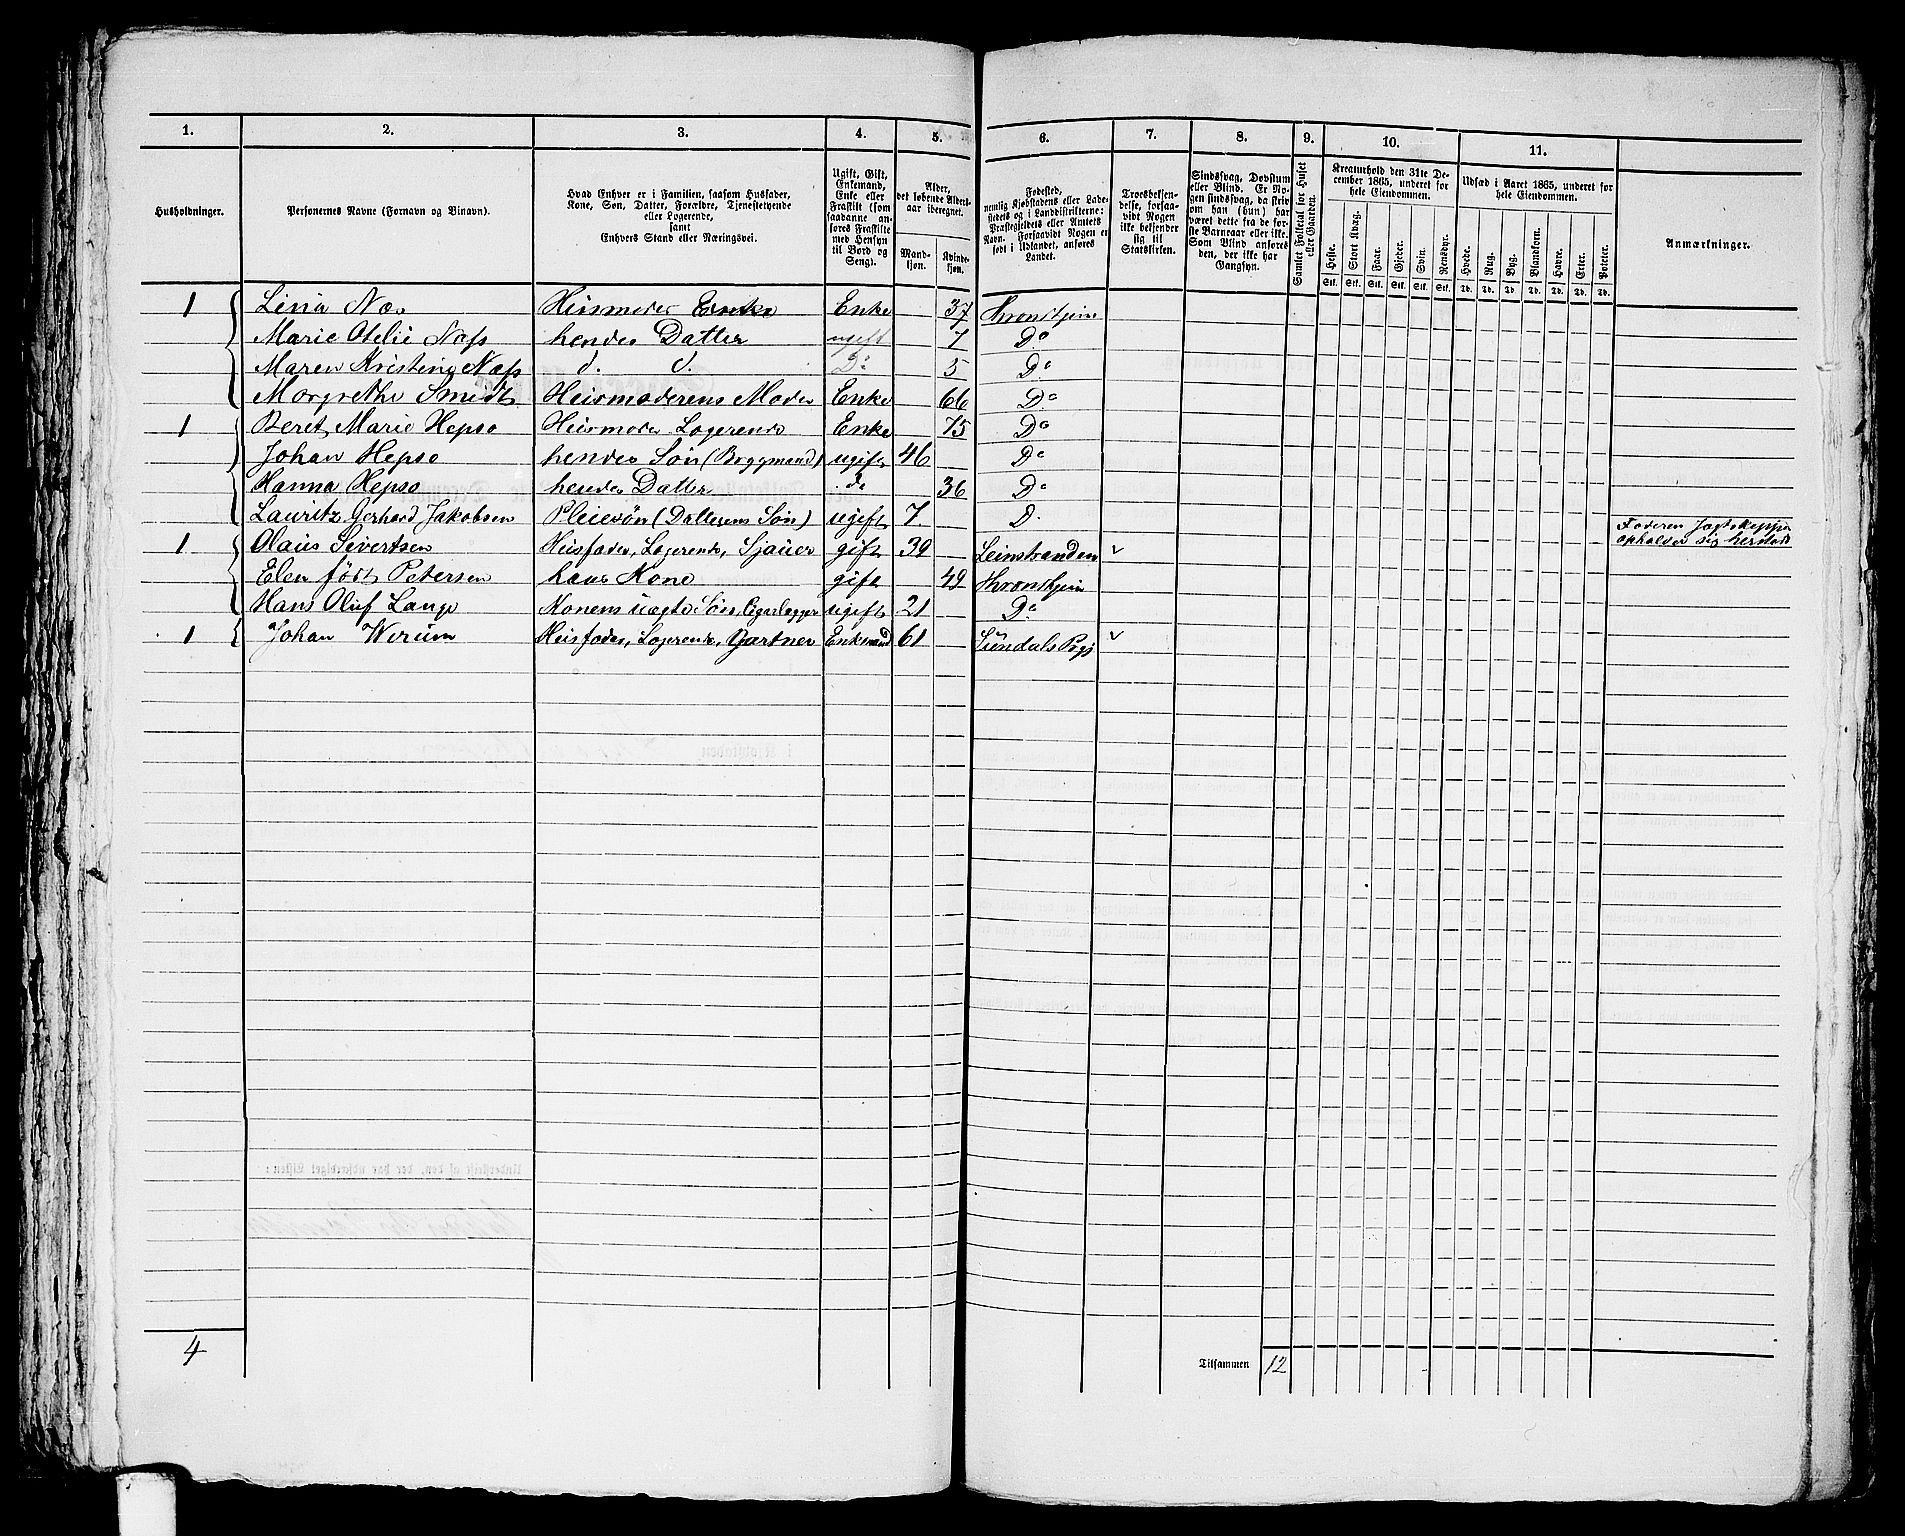 1. 2. 3. 4. 5. 6. 7. 8. 9. 10. 11.
Husholdninger.
Personernes Navne (Fornavn og Binavn).
Hvad Enhver er i Familien, saasom Husfader,
Kone, Søn, Datter, Forældre, Tjenestetyende
eller Logerende,
samt
Enhvers Stand eller Næringsvei.
Ugift, Gift,
Enkemand,
Enke eller
Fraskilt (som
saadanne an-
føres Fraskilte
med Hensyn
til Bord og
Seng).
Alder,
det løbende Alders-
aar iberegnet.
Mand-
kjøn.
Kvinde-
kjøn.
Fødested,
nemlig Kjøbstadens eller Lade-
stedets og i Landdistrikterne:
Præstegjeldets eller Amtets
Navn. Forsaavidt Nogen er
født i Udlandet, anføres
Landet.
Troesbekjen-
delse, forsaa-
vidt Nogen
ikke bekjender
sig til
Statskirken.
Sindssvag, Døvstum
eller Blind. Er No-
gen sindssvag, da skriv
om han (hun) har
været dette fra de før-
ste Barneaar eller ikke.
Som Blind anføres
den, der ikke har
Gangsyn.
Samlet Folketal for Huset
eller Gaarden.
Kreaturhold den 31te De-
cember 1865, underet for
hele Eiendommen.
Heste. Stort Kvæg. Faar. Gjeder. Svin. Rensdyr.
Stk. Stk. Stk. Stk. Stk. Stk.
Udsæd i Aaret 1865, underet for
hele Eiendommen.
Hvede. Rug. Byg. Blandkorn. Havre. Erter. Poteter.
Td. Td. Td. Td. Td. Td. Td.
Anmærkninger.
1 Lina Næs Husmoder Enke Enke 37 Thronhjem
Marie Otelie Næss hendes Datter ugift 7 Do
Maren Kristine Næss d. d. Do 5 Do
Margrethe Smidt Husmoderens Moder Enke 66 Do
1 Beret Marie Hepsø Husmoder Logerende Enke 75 Do
Johan Hepsø hendes Søn (Bryggmand) ugift 46 Do
Hanna Hepsø hendes Datter do 36 Do
Lauritz Gerhard Jakobsen Pleiesøn (Datterens Søn) ugift 7 D. Faderen
opholder sig
1 Olaus Sivertsen Husfader, Logerende, Sjauer gift 39 Leinstranden
Elen født Petersen hans Kone gift 49 Thronhjem
Hans Oluf Lange Konens uægte Søn, Cigarlægger ugift 21 Do
1 Johan Werum Husfader, Logerende, Gartner Enkemand 61 Sundals Prgj
4 Tilsammen 12